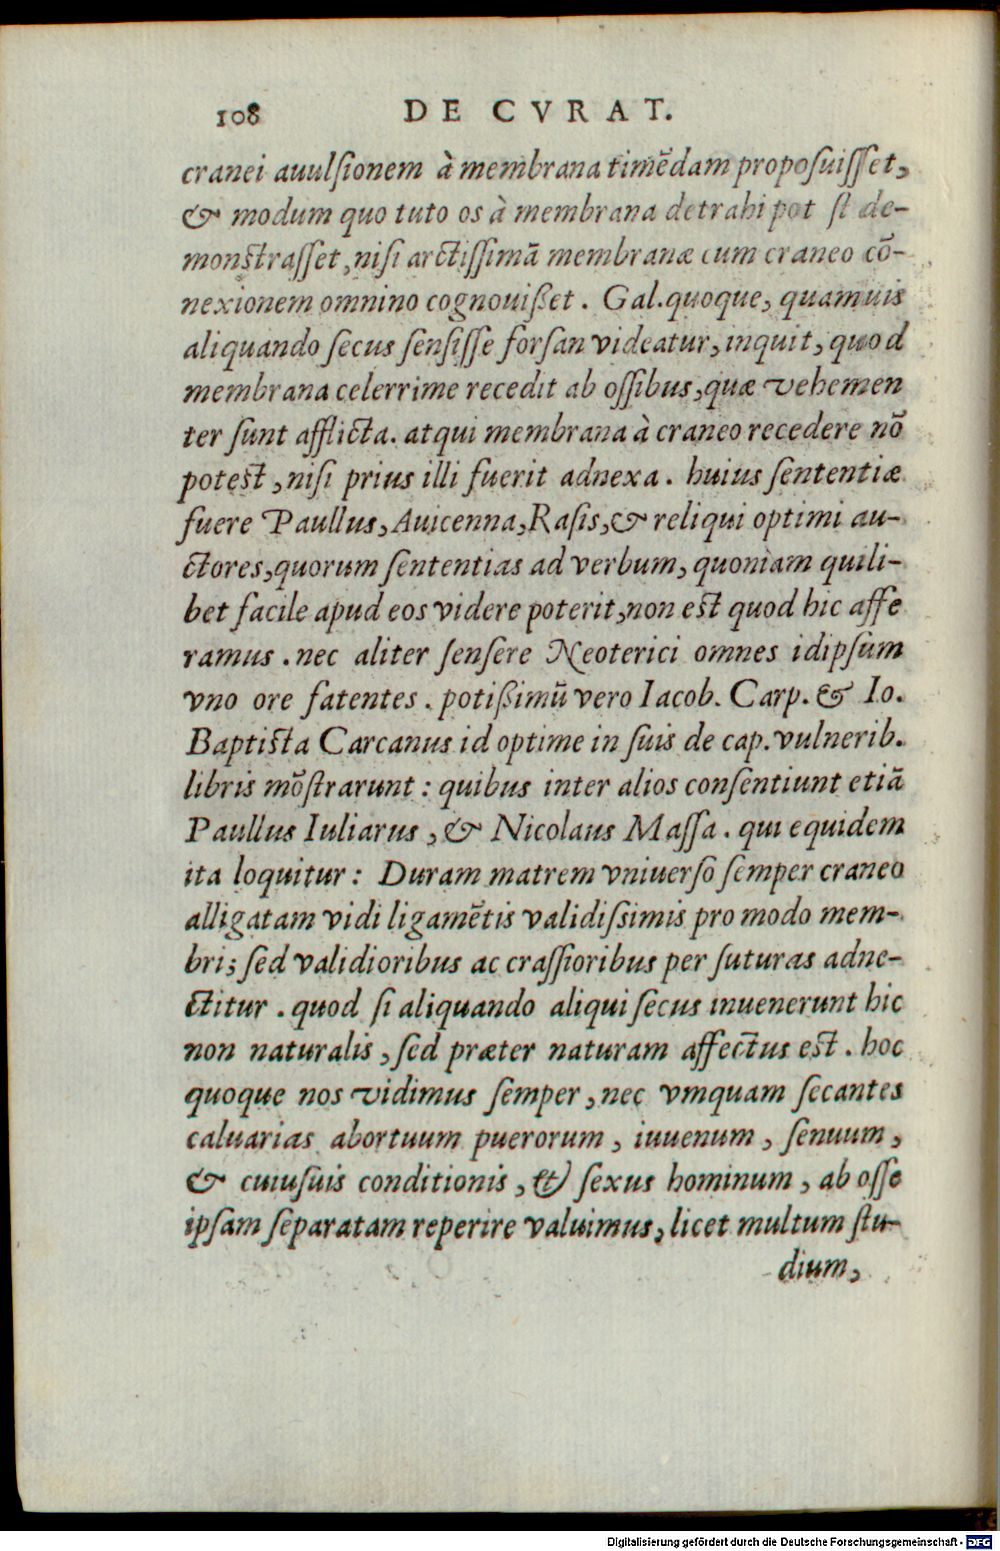 108 DE CVRAT.
cranei auulſionem à membrana timēdam propoſuiſſet,
& modum quo tuto os à membrana detrahi pot ſt de-
monſtraſſet, niſi arctiſſimā membranæ cum craneo cō-
nexionem omnino cognouißet. Gal. quoque, quamuis
aliquando ſecus ſenſiſſe forſan videatur, inquit, quod
membrana celerrime recedit ab oſſibus, quæ vehemen
ter ſunt afflicta. atqui membrana à craneo recedere nō
poteſt, niſi prius illi fuerit adnexa. huius ſententiæ
fuere Paullus, Auicenna, Raſis, & reliqui optimi au-
ctores, quorum ſententias ad verbum, quoniam quili-
bet facile apud eos videre poterit, non eſt quod hic affe
ramus. nec aliter ſenſere Neoterici omnes idipſum
vno ore fatentes. potißimū vero Iacob. Carp. & Io.
Baptiſta Carcanus id optime in ſuis de cap. vulnerib.
libris mōſtrarunt: quibus inter alios conſentiunt etiā
Paullus Iuliarus, & Nicolaus Maſſa. qui equidem
ita loquitur: Duram matrem vniuerſo ſemper craneo
alligatam vidi ligamētis validiſsimis pro modo mem-
bri; ſed validioribus ac craſſioribus per ſuturas adne-
ctitur. quod ſi aliquando aliqui ſecus inuenerunt hic
non naturalis, ſed præter naturam affectus eſt. hoc
quoque nos vidimus ſemper, nec vmquam ſecantes
caluarias abortuum puerorum, iuuenum, ſenuum,
& cuiuſuis conditionis, & ſexus hominum, ab oſſe
ipſam ſeparatam reperire valuimus, licet multum ſtu-
dium,
Digitalisierung gefördert durch die Deutsche Forschungsgemeinschaft - DFG